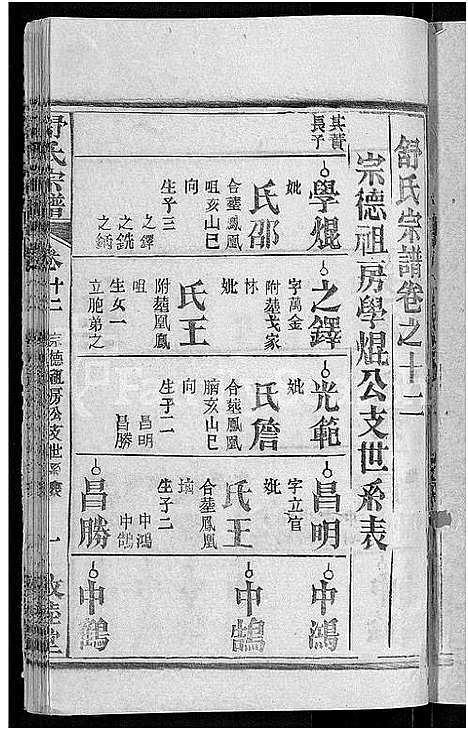 舒氏宗譜卷之十二
宗德祖房學焜公支世系表
其賁長子
學焜
妣
邵氏
合塟鳳凰
咀亥山巳
向
生子三
之鐸
之銑
之鋿
之鐸
字萬金
附塟戈家
林
妣
王氏
附塟鳳凰
咀
生女一
立胞弟之
光範
妣
詹氏
合塟鳳凰
腦亥山巳
向
生子二
昌明
昌勝
昌明
字立官
妣
王氏
合塟鳳凰
生子二
中鴻
中鵠
昌勝
中鴻
中鵠
中鶴
舒氏宗譜
卷十二
宗德祖房公支世系表
一
敦睦堂